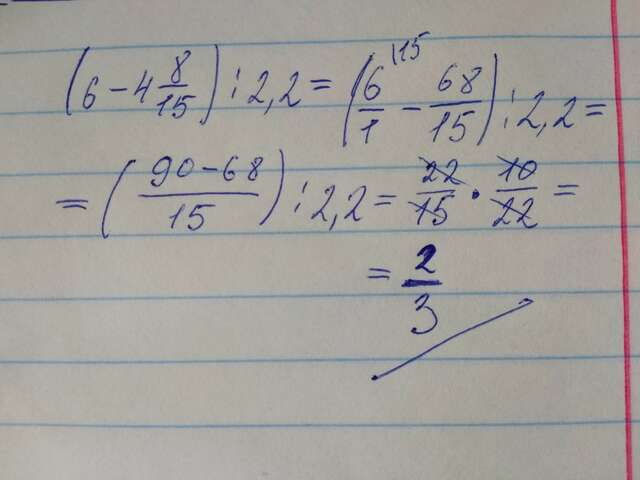 (6 - 4 8/15) : 2,2 = (6/1 \15 - 68/15) : 2,2 =
= ((90 - 68)/15) : 2,2 = 22/15 · 10/22 =
= 2/3